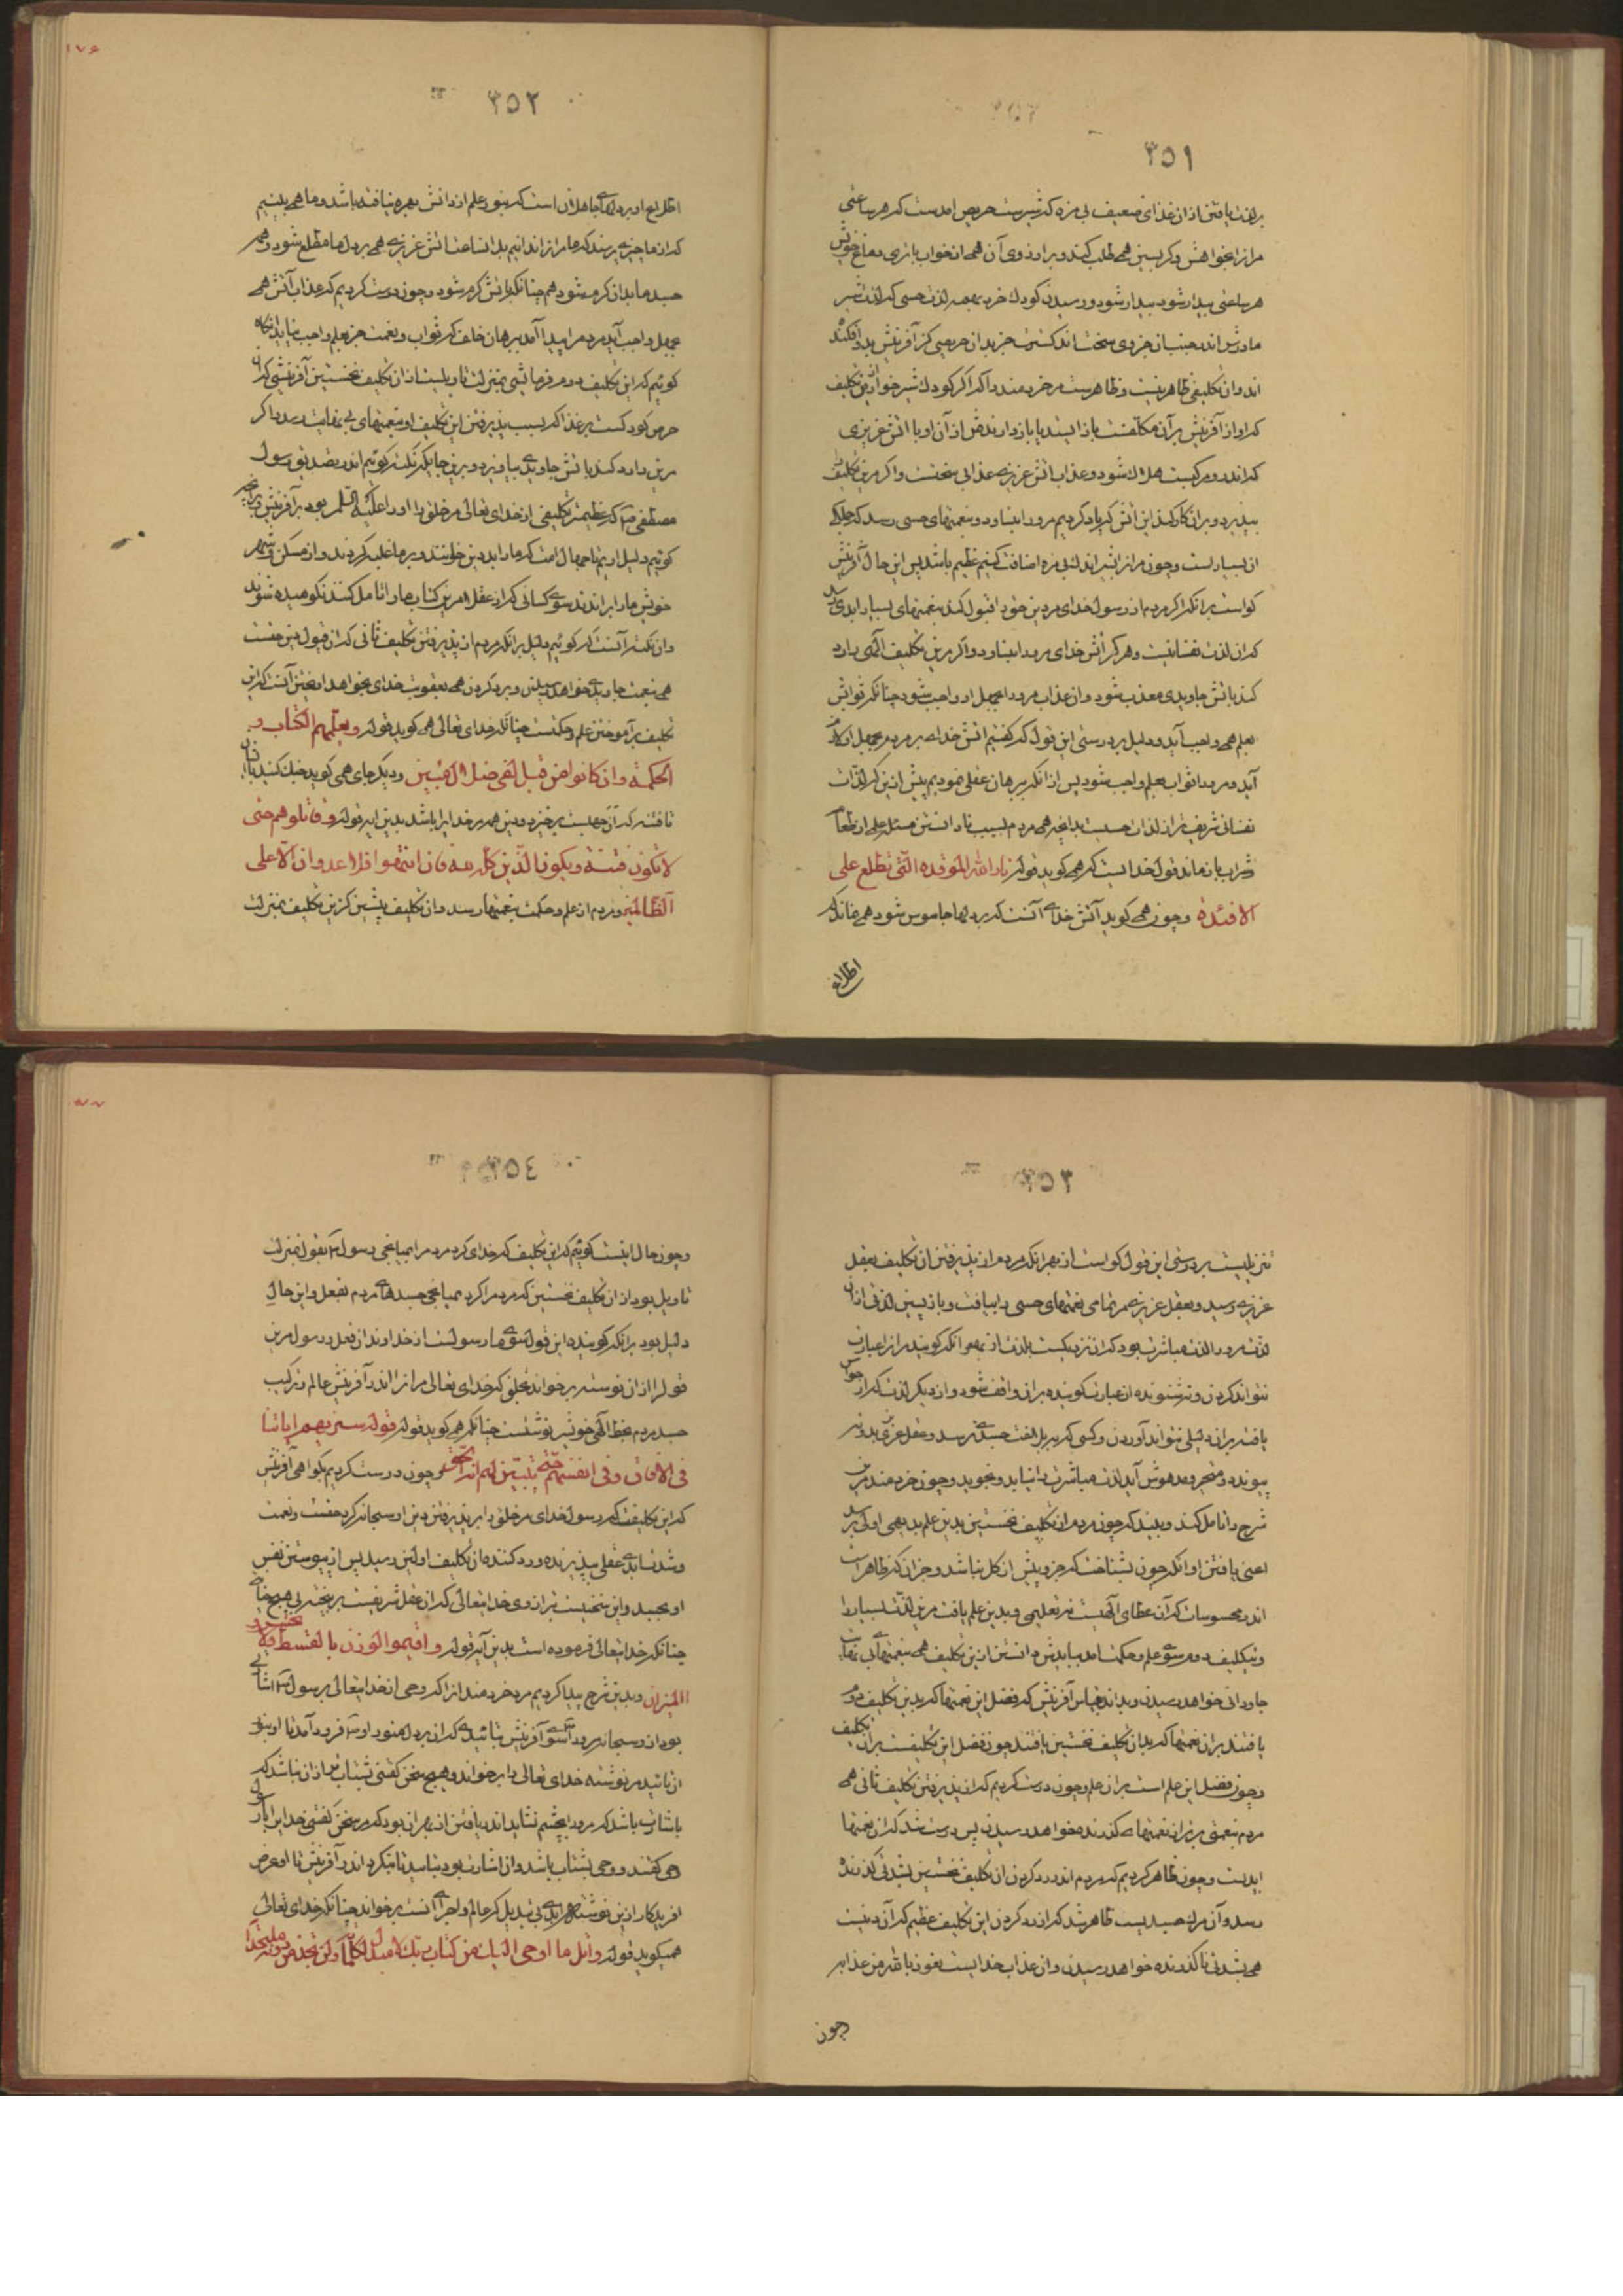 ٣٥١
بر لذت یافتن از ان غذای ضعیف بی مزه که شیرست حریص امدست که هر ساعتی
مر انرا بخواهش و گریستن همی طلب کند و بر ارزوی آن همی از خواب بازی دماغ خویش
هر ساعتی بیدار شود بیدار شود و رسیدن کودک خرد بهمه لذت حسی که لذت شیر
مادرش اندر جنب ان جزوی سخت اندکست جز بدان حریصی کز آفرینش بدو افکنده
اند وان تکلیفی ظاهر نیست و ظاهرست مر خردمند را که اگر کودک شیرخواره ازین تکلیف
که او از آفرینش بر آن مکلفست باز ایستد یا باز دارندش از آن او با آتش عزیزی
که اندر و مرکبست هلاک شود و عذاب آتش عزیزی عذابی سختست و اگر مرین تکلیف را
بپذیرد و بران کار کند این آتش که یاد کردیم مرو را نیازارد و بنعمتهای حسی رسد که جملگی
ان بسیارست و چون مر انرا بشیر اندک بی مزه اضافت کنیم عظیم باشد پس این حال آفرینش
گواست بر انکه اگر مردم از رسول خدای مر دین خود را قبول کند بنعمتهای بسیار ابدی رسد
که ان لذت نفسانیست و هرگز آتش خدای مرو را نیازارد و اگر مرین تکلیف الهی را رد
کند بآتش جاویدی معذب شود وان عذاب مرو را بجهل او واجب شود چنانکه ثوابش
بعلم همی واجب آید و دلیل بر درستی این قول که گفتیم آتش خدای بر مردم بجهل او لازم
آید و مرو را ثواب بعلم واجب شود پس از انکه برهان عقلی نمودیم پیش ازین که لذات
نفسانی شریفتر از لذات حسیست بدانچه همی مردم بسبب نادانستن مسئله علمی از طعام
و شراب باز ماند قول خدایست که همی گوید قوله نار الله الموقدة التی تطلع علی
الافئدة و چون همی گوید آتش خدای آنست که بر دلها جاسوس شود همی نماند که
اطلاع
١٧۶
٣٥٢
اطلاع او بر دلهای جاهلان است که بنور علم از دانش بهره نیافته باشد و ما همی بینیم
که از ما چیزی پرسند که ما مر انرا ندانیم بدان ساعت آتش عزیزی همی بر دل ما مطلع شود و همه
جسد ما بدان گرم شود همچنانکه بآتش گرم شود و چون درست کردیم که عذاب آتش همی
بجهل واجب آید مردم را پیدا آمد برهان خلف که ثواب و نعمت جز بعلم واجب نیاید انگاه
گوئیم که این تکلیف دوم فرمایشی بمنزلت تاویلست از ان تکلیف نخستین آفرینشی که ان
حرص کودکست بر غذا که بسبب پذیرفتن این تکلیف او بنعمتهای بی نهایت رسد و اگر
مرین را رد کند بآتش جاویدی بیاویزد و برین جایگه نکته گوئیم اندر تصدیق رسول
مصطفی ص که عظیمتر تکلیفی از خدای تعالی مر خلق را او راه علیه السلم بود بر آفرینش و بر
گوئیم دلیل ازین احجهال امت که ما را بدین خواستند و بر ما غلبه کردند و از مسکن و شهر
خویش ما را براندند سوی کسانی که از عقل امر این کتاب ما را تامل کنند نکوهیده شوند
وان نکته آنست که گوئیم دلیل بر انکه مردم از پذیرفتن تکلیف ثانی که ان قبول دین حقست
همی بنعمت جاویدی خواهد رسیدن و برد کردن همی بعقوبت خدای بخواهد اویختن آنست که این
تکلیف بر آموختن علم و حکمتست چنانکه خدای تعالی همی گوید قوله و یعلمهم الکتاب و
الحکمة وان کانوا من قبل لفی ضلال مبین و دیگر جای همی گوید جنگ کنید با ان
تا فتنه که ان جهلست برخیزد و دین همه مر خدایرا باشد بدین ایه قوله و قاتلوهم حتی
لا تکون فتنة و یکون الدین کله لله فان انتهوا فلا عدوان الا علی
الظالمین و مردم از علم و حکمت بنعمتها رسد وان تکلیف پیشین کزین تکلیف بمنزلت
٣٥٣
تنزیلیست بر درستی این قول گواست از بهر انکه مردم را از پذیرفتن ان تکلیف بعقل
عزیزی رسید و بعقل عزیزی مر تمامی نعمتهای حسی را بیافت و باز پسین لذتی از ان
لذت مرو را لذت مباشرت بود که ان نزدیکست بلذت از بهر انکه گوینده مر انرا عبارت
نتواند کردن و نه شنونده از عبارت گوینده بران واقف شود و از دیگر لذت که از حواس
یافته بران دلیلی بتواند آوردن و کسی که بر بلاغت جسدی نرسد و عقل عزیزی بدو نه
پیوندد و متحیر و مدهوش آید لذت مباشرت را نیابد و نجوید و چون خردمند مرین
شرح را تامل کند و ببیند که چون مردم از ان تکلیف نخستین بدین علم بدیهی اولی رسد
اعنی یافتن او انکه چون بشناخت که جزو بیش از کل نباشد و جز ان که ظاهرست
اندر محسوسات که آن عطای الهیست نه تعلیمی و بدین علم یافت مرین لذت بسیار را
و تکلیف دوم سوی علم و حکمت امد ببایدش دانستن ازین تکلیف همی بنعمتهای بی نهایت
جاودانی خواهد رسیدن و بداند بقیاس آفرینش که فضل این نعمتها که بدین تکلیف دوم
یافتند بران نعمتها که بدان تکلیف نخستین یافتند چون فضل این تکلیفست بران تکلیف
و چون فضل این علم است بران علم و چون درست کردیم که از پذیرفتن تکلیف ثانی همی
مردم بنعمتی برتر از نعمتهای گذرنده خواهد رسیدن پس درست شد که ان نعمتها
ابدیست و چون ظاهر کردیم که مردم اندر رد کردن ان تکلیف نخستین بشدتی گذرنده
رسد و آن مرگ جسدیست ظاهر شد که از رد کردن این تکلیف عظیم که آن دینیست
همی بشدتی ناگذرنده خواهد رسیدن وان عذاب خدایست نعوذ بالله من عذابه
و چون
١٧٧
٣٥٤
و چون حال اینست گوئیم که این تکلیف که خدای کرد مردم را بمیانجی رسول ع بقول بمنزلت
تاویل بود از ان تکلیف نخستین که مردم را کرد بمیانجی جسدهای مردم بفعل و این حال
دلیل بود بر انکه گوینده این قول سوی ما رسولست از خداوند ان فعل و رسول مرین
قول را از ان نوشته برخواند بخلق که خدای تعالی مر انرا اندر آفرینش عالم و ترکیب
جسد مردم بخط الهی خویش نوشتست چنانکه همی گوید قوله قوله سنریهم ایاتنا
فی الافاق و فی انفسهم حتی یتبین لهم انه الحق و چون درست کردیم بگواهی آفرینش
که این تکلیفست که رسول خدای مر خلق را بر پذیرفتن دین او سبحانه کرد حقست و نعمت
و شدت ابدی عقلی پذیرنده و رد کننده ان تکلیف اولین رسید پس از پیوستن نفس
او بجسد و این سخنیست بترازوی خدایتعالی که ان عقل شریفست بر سخته بی هیچ خطائی
چنانکه خدایتعالی فرموده است بدین آیه قوله و اقیموا الوزن بالقسط و لا تخسروا
المیزان و بدین شرح پیدا کردیم مر خردمندانرا که وحی از خدایتعالی برسول ع اشارتی
بود از و سبحانه مرو را سوی آفرینش بتائیدی که ان بر دل منور او ع فرود آمد تا او بنور
ان تائید مر نوشته خدای تعالی را برخواند و هیچ سخن گفتنی شتاب تر از ان نباشد که
باشارت باشد که مرو را بچشم نشاید اندر یافتن از بهر ان بود که مر سخن گفتن خدایرا با رسول
وحی گفتند و وحی بشتاب باشد وان اشارت بود بتایید تا بنگرد اندر آفرینش تا او غرض
افریدگار ازین نوشته ابدی بی تبدیل که عالم و اجزای آنست برخواند چنانکه خدای تعالی
همیگوید قوله واتل ما اوحی الیک من کتاب ربک لا مبدل لکلماته ولن تجد من دونه ملتحدا